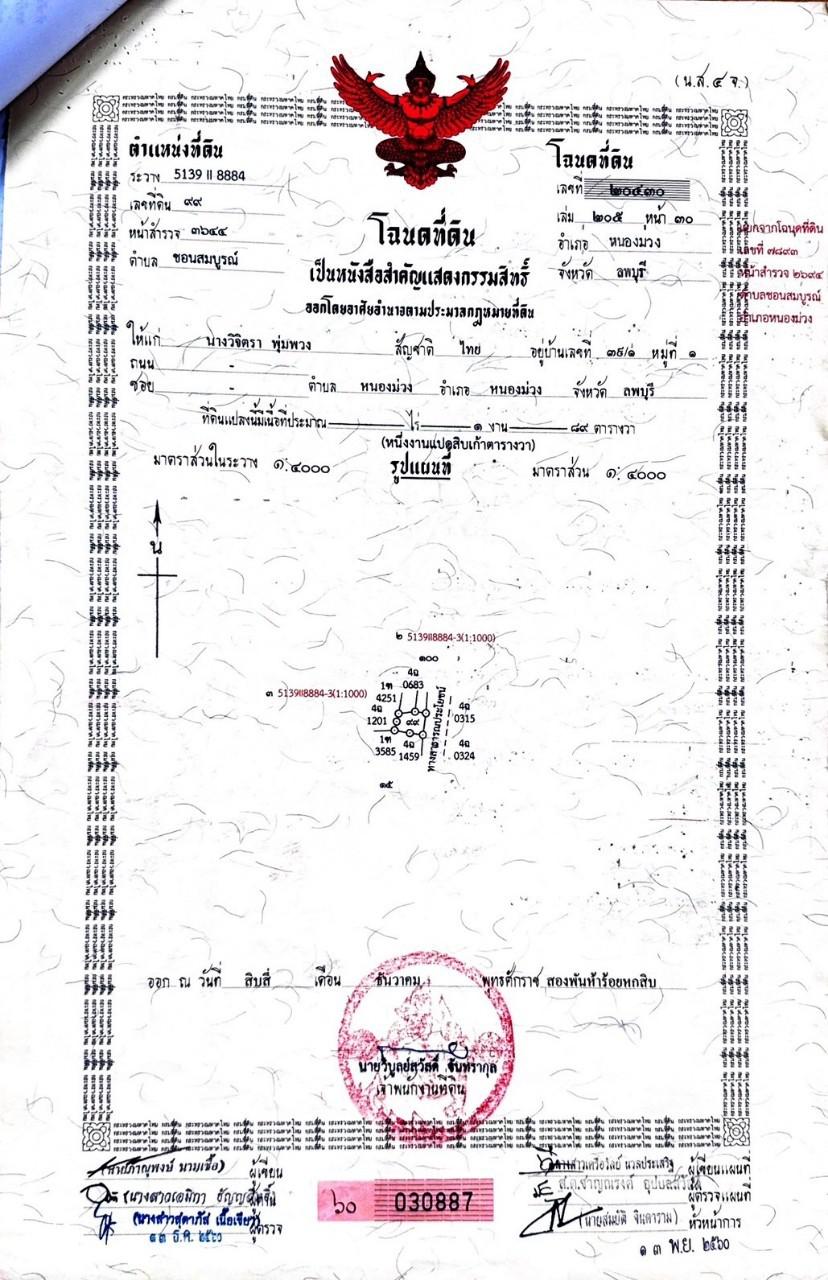 (น.ส.๔ จ.)
ตำแหน่งที่ดิน
ระวาง 5139 II 8884
เลขที่ดิน ๙๙
หน้าสำรวจ ๓๖๔๔
ตำบล ชอนสมบูรณ์
โฉนดที่ดิน
เลขที่ ๒๐๔๓๐
เล่ม ๒๐๕ หน้า ๓๐
อำเภอ หนองม่วง
จังหวัด ลพบุรี
แยกจากโฉนดที่ดิน
เลขที่ ๗๘๙๓
หน้าสำรวจ ๒๖๙๔
ตำบลชอนสมบูรณ์
อำเภอหนองม่วง
โฉนดที่ดิน
เป็นหนังสือสำคัญแสดงกรรมสิทธิ์
ออกโดยอาศัยอำนาจตามประมวลกฎหมายที่ดิน
ให้แก่ นางวิจิตรา พุ่มพวง สัญชาติ ไทย อยู่บ้านเลขที่ ๓๙/๑ หมู่ที่ ๑
ถนน -
ซอย - ตำบล หนองม่วง อำเภอ หนองม่วง จังหวัด ลพบุรี
ที่ดินแปลงนี้มีเนื้อที่ประมาณ ไร่ ๑ งาน ๘๙ ตารางวา
(หนึ่งงานแปดสิบเก้าตารางวา)
มาตราส่วนในระวาง ๑:๔๐๐๐ รูปแผนที่ มาตราส่วน ๑:๔๐๐๐
น
๒ 5139II8884-3(1:1000)
๑๐๐
๓ 5139II8884-3(1:1000)
4ฉ
0683
1ฑ
4251
4ฉ
1201
๙๙
ทางสาธารณประโยชน์
4ฉ
0315
1ฑ
3585
4ฉ
1459
4ฉ
0324
๑๕
ออก ณ วันที่ สิบสี่ เดือน ธันวาคม พุทธศักราช สองพันห้าร้อยหกสิบ
นายวิบูลย์สวัสดิ์ จันทรากุล
เจ้าพนักงานที่ดิน
ผู้เขียน
(นางสาวสุดาภัส เนื้อเขียว) ผู้ตรวจ
๑๓ ธ.ค. ๒๕๖๐
๖๐ 030887
นางสาวเครือวัลย์ นวลประเสริฐ ผู้เขียนแผนที่
ผู้ตรวจแผนที่
(นายสมบัติ จินดาราม) หัวหน้าการ
๑๓ พ.ย. ๒๕๖๐